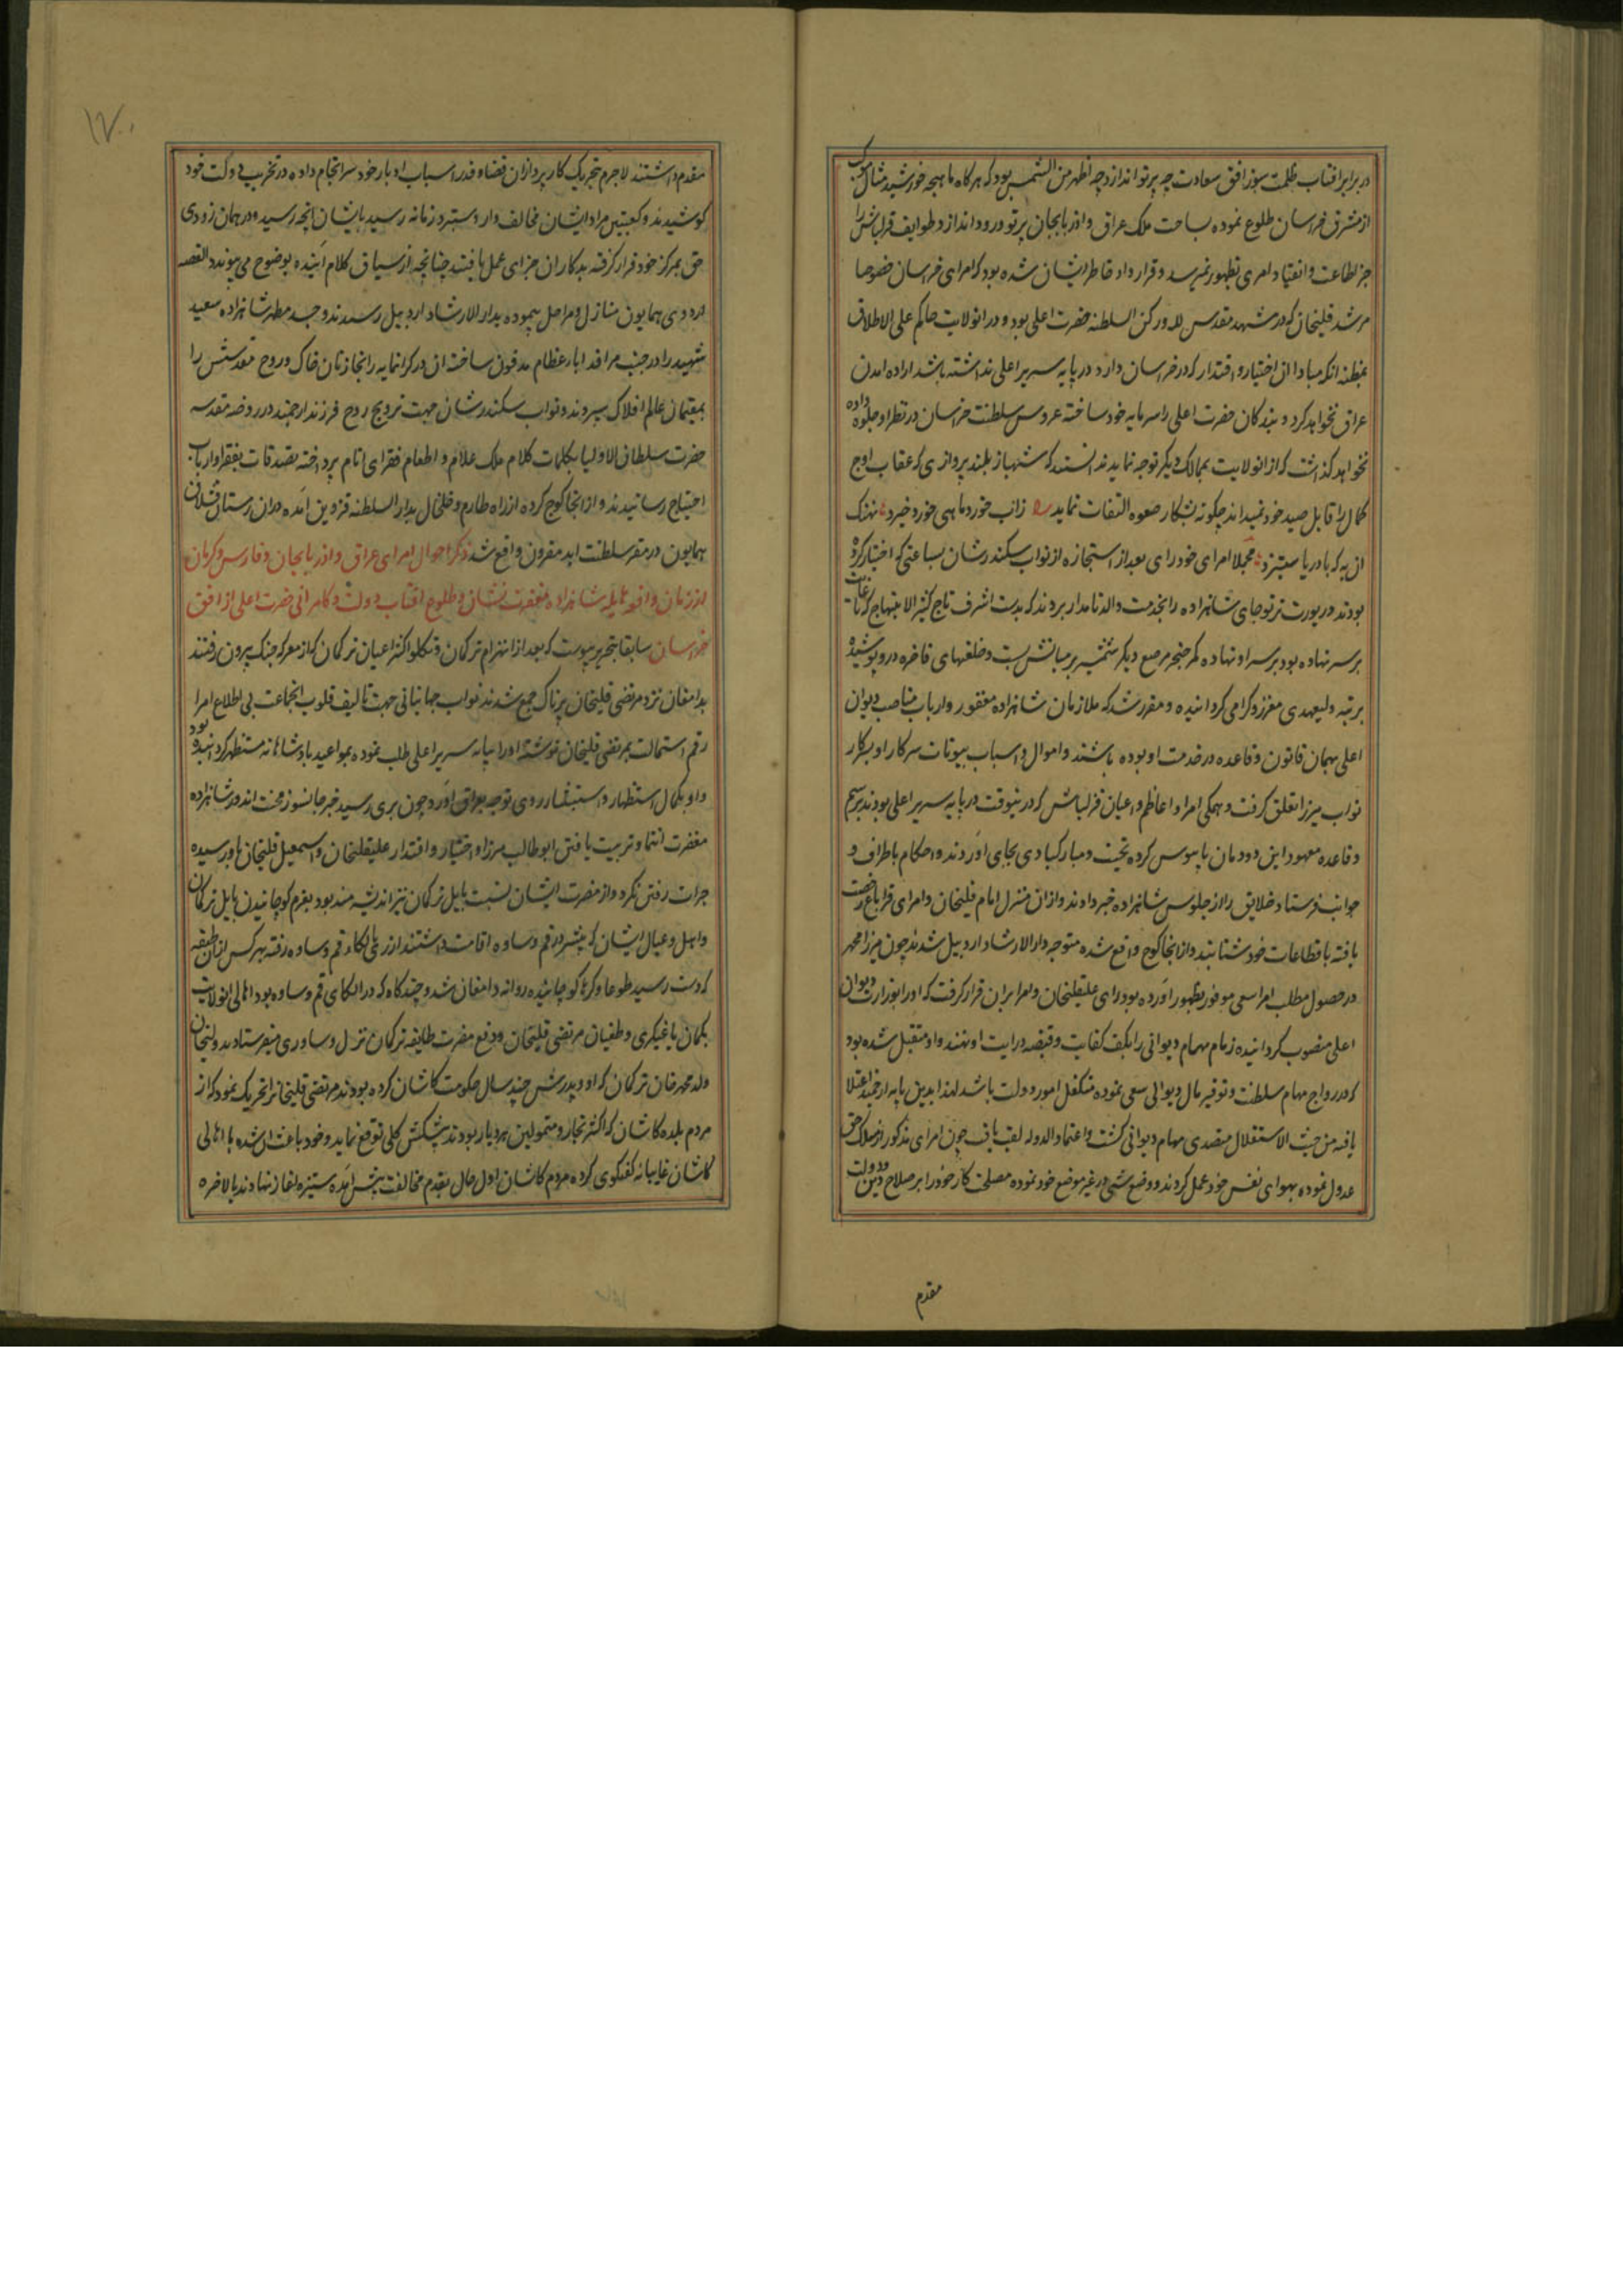 در برابر افتاب ظلمت سوز افق سعادت چه پرتو اندازد چه اظهر من الشمس بود که هرکاه ماهیچه خورشید مثال موکب
از مشرق خراسان طلوع نموده بساحت ملک عراق و اذربایجان پرتو ورود اندازد طوایف قزلباش را
جز اطاعت و انقیاد امری بظهور نمیرسد و قرارداد خاطر ایشان شده بود که امرای خراسان خصوصا
مرشد قلیخان که در مشهد مقدس لله و رکن السلطنه حضرت اعلی بود و در انولایت حاکم علی الاطلاق
بمظنه انکه مبادا ان اختیار و اقتدار که در خراسان دارد در پایه سریر اعلی نداشته باشد اراده امدن
عراق نخواهد کرد و بندکان حضرت اعلی را سرمایه خود ساخته عروس سلطنت خراسان در نظر او جلوه داده
نخواهد کذاشت که از انولایت بممالک دیکر توجه نماید ندانستند که شهباز بلند پروازی که عقاب اوج
کمال را قابل صید خود نمیداند چکونه بشکار صعوه التفات نماید زاب خورد ماهی خورد خیزد نهنک
ان به که با دریا ستیزد مجملا امرای خود رای بعد از استجازه از نواب سکندرشان بساعتی که اختیار کرده
بودند در یورت ترتوجای شاهزاده را بخدمت والد نامدار بردند که بدست اشرف تاج کثیر الابتهاج که تا غایت
بر سر نهاده بود بر سر او نهاده کمر خنجر مرصع دیکر شمشیر بر میانش بست و خلعتهای فاخره در و پوشیده
برتبه ولیعهدی معزز و کرامی کردانیده و مقرر شد که ملازمان شاهزاده مغفور و ارباب مناصب دیوان
اعلی بهمان قانون و قاعده در خدمت او بوده باشند و اموال و اسباب بیوتات سرکار او بسرکار
نواب میرزا تعلق کرفت و همکی امرا و اعاظم و اعیان قزلباش که در نیوقت در پایه سریر اعلی بودند برسم
و قاعده معهود این دودمان پابوس کرده تحیت و مبارکبادی بجای اوردند و احکام باطراف و
جوانب فرستاده خلایق را از جلوس شاهزاده خبر دادند و ازان منزل امام قلیخان و امرای قراباغ رخصت
یافته باقطاعات خود شتافتند و از انجا کوچ واقع شده متوجه دار الارشاد اردبیل شدند چون میرزا محمد
در حصول مطلب امرا سعی موفور بظهور اورده بود رای علیقلیخان و امرا بران قرار کرفت که او را بوزارت دیوان
اعلی منصوب کردانیده زمام مهام دیوانی را بکف کفایت و قبضه درایت او نهند و او متقبل شده بود
که در رواج مهام سلطنت و توفیر مال دیوانی سعی نموده متکفل امور دولت باشد لهذا بدین پایه ارجمند اعتلا
یافته من حیث الاستقلال متصدی مهام دیوانی کشت و اعتماد الدوله لقب یافت چون امرای مذکور از مسلک حق
عدول نموده بهوای نفس خود عمل کردند و وضع شیی در غیر موضع خود نموده مصلحت کار خود را بر صلاح دین و دولت
مقدم
۱۷۰
مقدم داشتند لاجرم بتحریک کارپردازان قضا و قدر اسباب ادبار خود سرانجام داده در تخریب دولت خود
کوشیدند و کعبتین مراد ایشان مخالف دار دستبرد زمانه رسید بایشان انچه رسید و در همان زودی
حق بمرکز خود قرار کرفته بدکاران جزای عمل یافتند چنانچه از سیاق کلام اینده بوضوح می پیوندد القصه
اردوی همایون منازل و مراحل پیموده بدار الارشاد اردبیل رسیدند و جسد مطهر شاهزاده سعید
شهید را در جنب مراقد اباء عظام مدفون ساخته ان در کرانمایه را بخازنان خاک و روح مقدسش را
بمقیمان عالم افلاک سپردند و نواب سکندرشان جهت ترویج روح فرزند ارجمند در روضه مقدسه
حضرت سلطان الاولیا بکلمات کلام ملک علام و اطعام فقرای انام پرداخته تصدقات بفقرا و ارباب
احتیاج رسانیدند و از انجا کوچ کرده از راه طارم و خلخال بدار السلطنه قزوین امده دران زمستان قشلاق
همایون در مقر سلطنت ابد مقرون واقع شد ذکر احوال امرای عراق و اذربایجان و فارس و کرمان
از زمان واقعه هایله شاهزاده مغفرت نشان و طلوع افتاب دولت و کامرانی حضرت اعلی از افق
خراسان سابقا بتحریر پیوست که بعد از انهزام ترکمان و تکلو اکثر اعیان ترکمان که از معرکه جنک بیرون رفتند
بدامغان نزد مرتضی قلیخان پرناک جمع شدند نواب جهانبانی جهت تالیف قلوب انجماعت بی اطلاع امرا
رقم استمالت بمرتضی قلیخان نوشته او را بپایه سریر اعلی طلب نموده بمواعید پادشاهانه مستظهر کردانیده بود
و او بکمال استظهار و استبشار روی توجه بعراق اورد چون بری رسید خبر جانسوز محنت اندوز شاهزاده
مغفرت انتما و تربیت یافتن ابوطالب میرزا و اختیار و اقتدار علیقلیخان و اسمعیل قلیخان باو رسیده
جرات رفتن نکرد و از مضرت ایشان نسبت بایل ترکمان نیز اندیشه مند بود بعزم کوچانیدن ایل ترکمان
و اهل و عیال ایشان که بیشتر در قم و ساوه اقامت داشتند از ری بالکاء قم و ساوه رفته هرکس ازان طبقه
که دست رسید طوعا و کرها کوچانیده روانه دامغان شد و چندکاه که در الکای قم و ساوه بود اهالی انولایت
بکمان یاغیکری و طغیان مرتضی قلیخان و دفع مضرت طایفه ترکمان نزل و ساوری میفرستادند ولیخان
ولد محمد خان ترکمان که او و پدرش چند سال حکومت کاشان کرده بودند مرتضی قلیخانرا تحریک نمود که از
مردم بلده کاشان که اکثر تجار و متمولین هر دیار بودند پیشکش کلی توقع نماید و خود باعث ان شده با اهالی
کاشان غایبانه کفتکوی کرده مردم کاشان اول حال بقدم مخالفت پیش امده ستیزه اغاز نهادند بالاخره